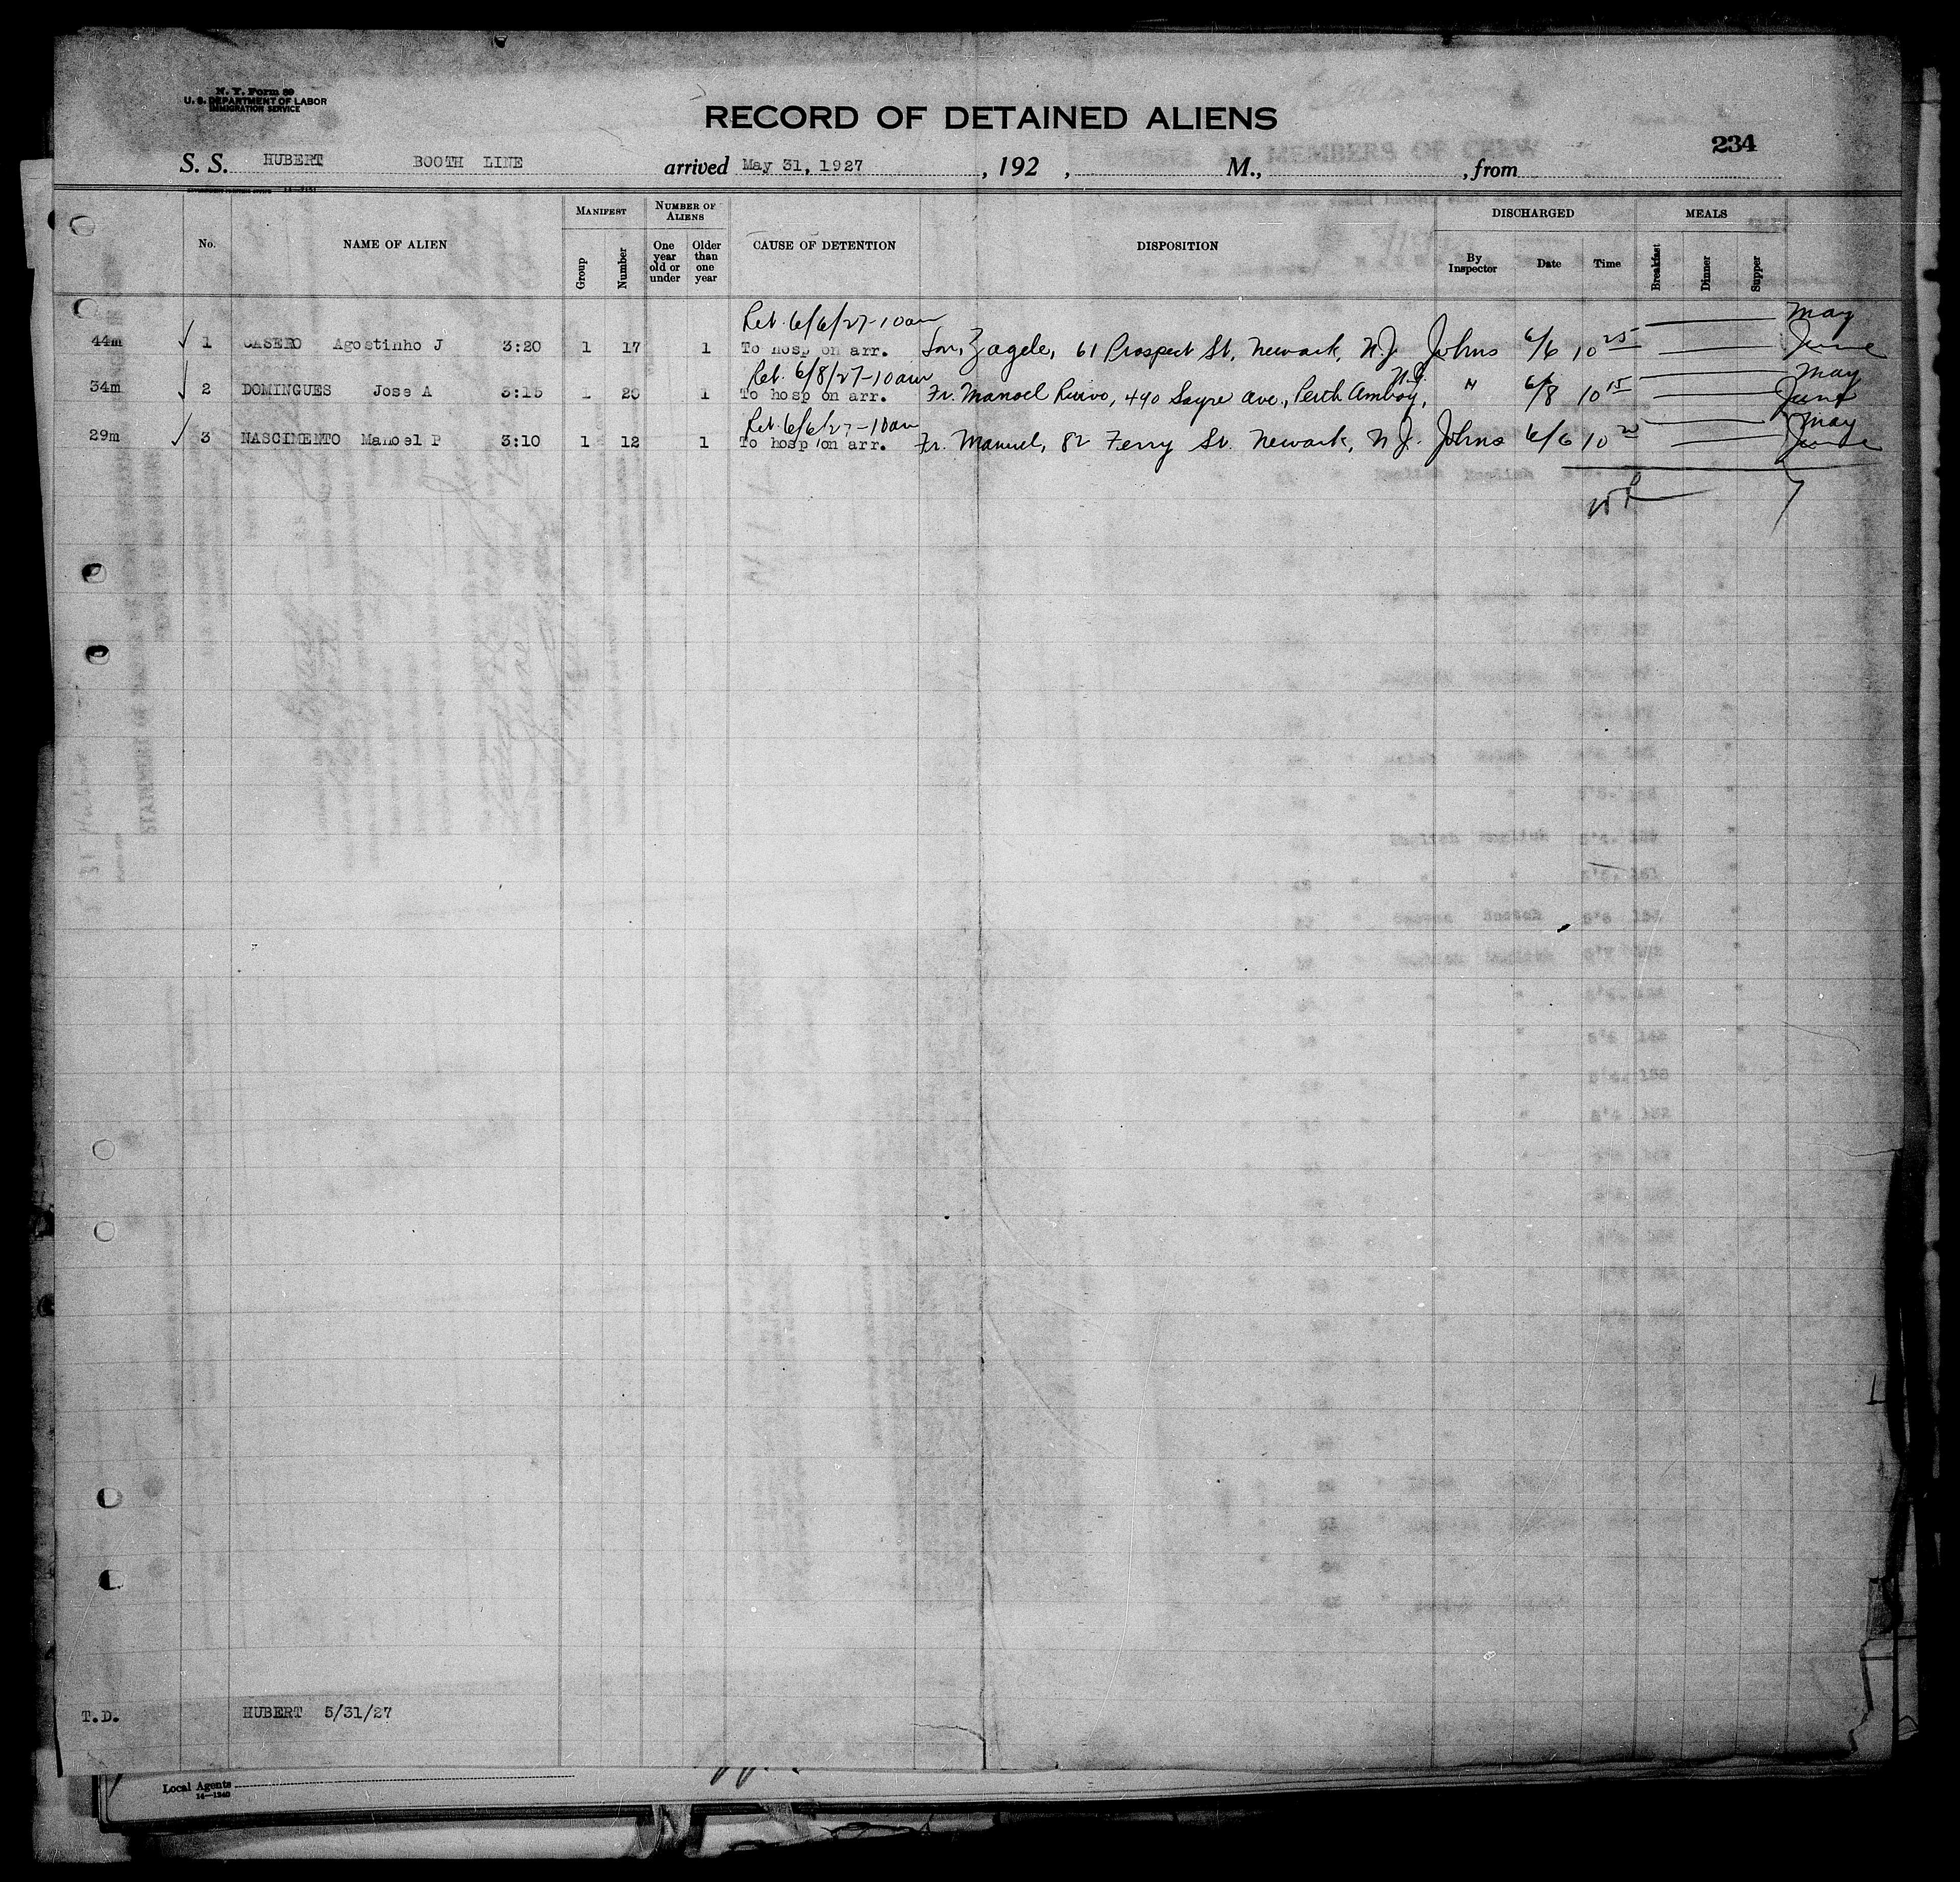 N. Y. Form 89
U. S. DEPARTMENT OF LABOR
IMMIGRATION SERVICE
RECORD OF DETAINED ALIENS
234
S. S. HUBERT BOOTH LINE arrived May 31, 1927, 192 , M., , from
No. NAME OF ALIEN MANIFEST Group Number NUMBER OF ALIENS One year old or under Older than one year CAUSE OF DETENTION DISPOSITION DISCHARGED By Inspector Date Time MEALS Breakfast Dinner Supper
Ret. 6/6/27-10am May
44m 1 CASERO Agostinho J 3:20 1 17 1 To hosp on arr. 61 Prospect St, Newark, N.J. Johns 6/6 10 25 June
Ret. 6/8/27-10am N.J. May
34m 2 DOMINGUES Jose A 3:15 1 20 1 To hosp on arr. Fr. Manoel Ruivo, 490 Sayre Ave., Perth Amboy, " 6/8 10 15 June
Ret. 6/6/27-10am May
29m 3 NASCIMENTO Manoel P 3:10 1 12 1 To hosp on arr. Fr. Manuel, 82 Ferry St. Newark, N.J. Johns 6/6 10 June
T.D. HUBERT 5/31/27
Local Agents
14-1240